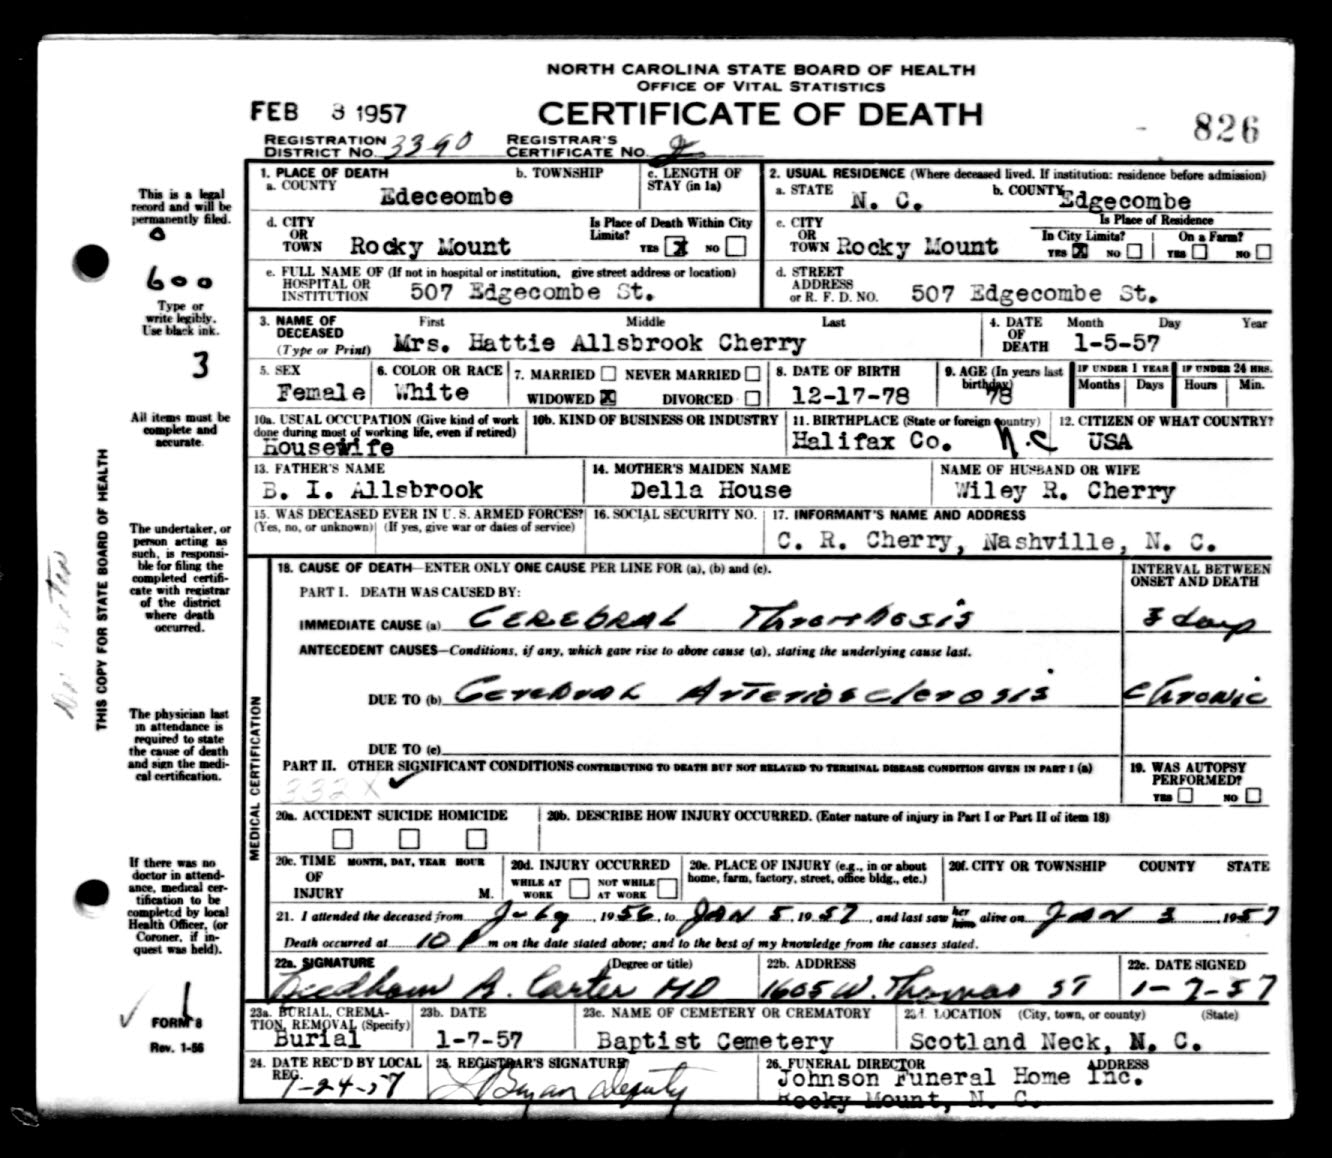 NORTH CAROLINA STATE BOARD OF HEALTH
OFFICE OF VITAL STATISTICS
FEB 3 1957
CERTIFICATE OF DEATH
826
REGISTRATION DISTRICT NO. 3390 REGISTRAR'S CERTIFICATE NO.
1. PLACE OF DEATH
a. COUNTY Edeceombe
b. TOWNSHIP
c. LENGTH OF STAY (in 1a)
2. USUAL RESIDENCE (Where deceased lived. If institution: residence before admission)
a. STATE N. C. b. COUNTY Edgecombe
d. CITY OR TOWN Rocky Mount
Is Place of Death Within City Limits? YES X NO
c. CITY OR TOWN Rocky Mount
Is Place of Residence
In City Limits? YES X NO
On a Farm? YES NO
e. FULL NAME OF (If not in hospital or institution, give street address or location)
HOSPITAL OR INSTITUTION 507 Edgecombe St.
d. STREET ADDRESS or R. F. D. NO. 507 Edgecombe St.
3. NAME OF DECEASED (Type or Print) First Middle Last
Mrs. Hattie Allsbrook Cherry
4. DATE OF DEATH Month Day Year
1-5-57
5. SEX Female
6. COLOR OR RACE White
7. MARRIED NEVER MARRIED
WIDOWED X DIVORCED
8. DATE OF BIRTH 12-17-78
9. AGE (In years last birthday) 78
IF UNDER 1 YEAR Months Days
IF UNDER 24 HRS. Hours Min.
10a. USUAL OCCUPATION (Give kind of work done during most of working life, even if retired)
Housewife
10b. KIND OF BUSINESS OR INDUSTRY
11. BIRTHPLACE (State or foreign country)
Halifax Co. N.C
12. CITIZEN OF WHAT COUNTRY?
USA
13. FATHER'S NAME
B. I. Allsbrook
14. MOTHER'S MAIDEN NAME
Della House
NAME OF HUSBAND OR WIFE
Wiley R. Cherry
15. WAS DECEASED EVER IN U. S. ARMED FORCES?
(Yes, no, or unknown) (If yes, give war or dates of service)
16. SOCIAL SECURITY NO.
17. INFORMANT'S NAME AND ADDRESS
C. R. Cherry, Nashville, N. C.
18. CAUSE OF DEATH—ENTER ONLY ONE CAUSE PER LINE FOR (a), (b) and (c).
INTERVAL BETWEEN ONSET AND DEATH
PART I. DEATH WAS CAUSED BY:
IMMEDIATE CAUSE (a) Cerebral Thrombosis 3 days
ANTECEDENT CAUSES—Conditions, if any, which gave rise to above cause (a), stating the underlying cause last.
DUE TO (b) Cerebral Arteriosclerosis Chronic
DUE TO (c)
PART II. OTHER SIGNIFICANT CONDITIONS CONTRIBUTING TO DEATH BUT NOT RELATED TO TERMINAL DISEASE CONDITION GIVEN IN PART I (a)
332 X
19. WAS AUTOPSY PERFORMED?
YES NO
20a. ACCIDENT SUICIDE HOMICIDE
20b. DESCRIBE HOW INJURY OCCURRED. (Enter nature of injury in Part I or Part II of item 18)
20c. TIME OF INJURY MONTH, DAY, YEAR HOUR M.
20d. INJURY OCCURRED
WHILE AT WORK NOT WHILE AT WORK
20e. PLACE OF INJURY (e.g., in or about home, farm, factory, street, office bldg., etc.)
20f. CITY OR TOWNSHIP COUNTY STATE
21. I attended the deceased from 1956, to JAN 5, 1957, and last saw her him alive on JAN 3, 1957
Death occurred at 10 P m on the date stated above; and to the best of my knowledge from the causes stated.
22a. SIGNATURE (Degree or title)
Needham B. Carter MD
22b. ADDRESS
1605 W. Thomas ST
22c. DATE SIGNED
1-7-57
23a. BURIAL, CREMATION, REMOVAL (Specify)
Burial
23b. DATE
1-7-57
23c. NAME OF CEMETERY OR CREMATORY
Baptist Cemetery
23d. LOCATION (City, town, or county) (State)
Scotland Neck, N. C.
24. DATE REC'D BY LOCAL REG.
1-24-57
25. REGISTRAR'S SIGNATURE
Bryan deputy
26. FUNERAL DIRECTOR ADDRESS
Johnson Funeral Home Inc.
Rocky Mount, N. C.
This is a legal record and will be permanently filed.
600
Type or write legibly. Use black ink.
3
All items must be complete and accurate.
The undertaker, or person acting as such, is responsible for filing the completed certificate with registrar of the district where death occurred.
The physician last in attendance is required to state the cause of death and sign the medical certification.
If there was no doctor in attendance, medical certification to be completed by local Health Officer, (or Coroner, if inquest was held).
FORM 8
Rev. 1-56
THIS COPY FOR STATE BOARD OF HEALTH
MEDICAL CERTIFICATION